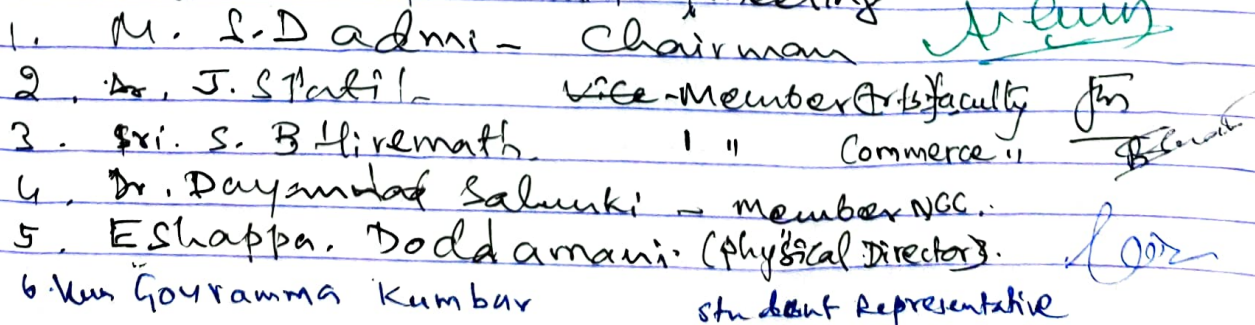 1. M. S. Dadmi - Chairman
2. Dr. J. S Patil - Vice-Member (Arts) faculty
3. Sri. S. B Hiremath. 1 " Commerce "
4. Dr. Dayanand Salunki - member NGC.
5. Eshappa. Doddamani. (Physical Director).
6. Kum Gouramma Kumbar student Representative